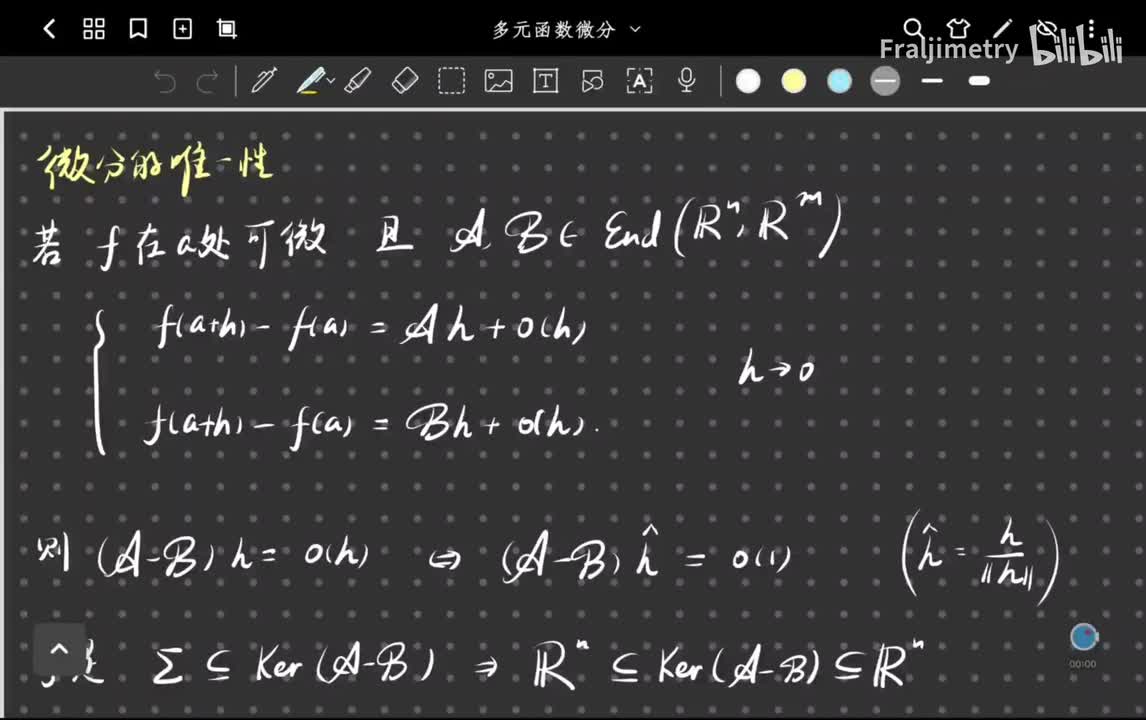 多元函数微分
Fraljimetry bilibili
微分的唯一性
若 f 在 a 处可微 且 A, B ∈ End(ℝⁿ; ℝᵐ)
f(a+h) − f(a) = A h + o(h)
h → 0
f(a+h) − f(a) = B h + o(h).
则 (A−B) h = o(h) ⇔ (A−B) ĥ = o(1) (ĥ = h/‖h‖)
Σ ⊆ Ker(A−B) ⇒ ℝⁿ ⊆ Ker(A−B) ⊆ ℝⁿ
00:00